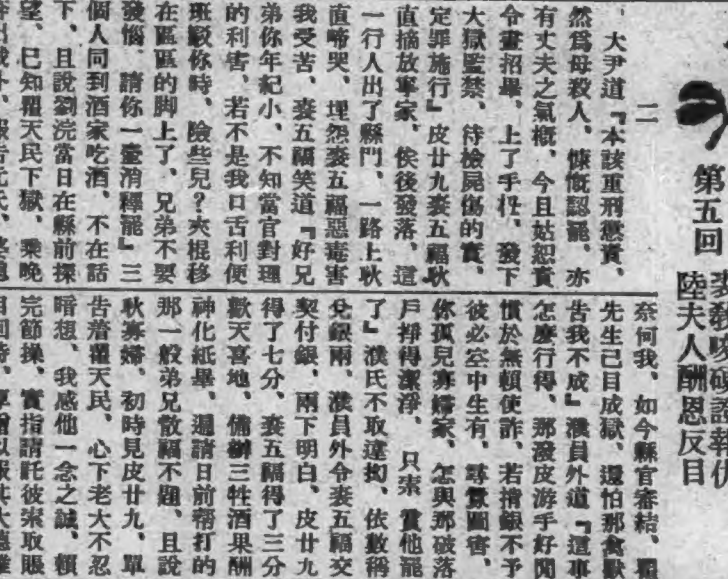 第五回
陸夫人酬恩反目
二
大尹道『本該重刑懲責、
然爲母殺人、慷慨認罪、亦
有丈夫之氣概、今且姑恕責
令畫招畢、上了手杻、發下
大獄監禁、待檢屍傷的實、
定罪施行』皮廿九婁五福耿
直摘放寧家、俟後發落、這
一行人出了縣門、一路上耿
直啼哭、埋怨婁五福惡毒害
我受苦、婁五福笑道『好兄
弟你年紀小、不知當官對理
的利害、若不是我口舌利便
班駁你時、險些兒?夾棍移
在區區的脚上了、兄弟不要
發惱、請你一壺消釋罷』三
個人同到酒家吃酒、不在話
下、且說劉浣當日在縣前探
望、已知瞿天民下獄、乘晚
奈何我、如今縣官審結、瞿
先生已目成獄、還怕那禽獸
告我不成』濮員外道『這事
怎麼行得、那潑皮游手好閑
慣於無賴使詐、若揹銀不予
彼必空中生有、尋釁圖害、
你孤兒寡婦家、怎與那破落
戶掙得潔淨、只索 他罷
了』濮氏不取違拗、依數稱
兌銀兩、濮員外令婁五福交
契付銀、兩下明白、皮廿九
得了七分、婁五福得了三分
歡天喜地、備辦三牲酒果酬
神化紙畢、遍請日前幫打的
那一般弟兄散福不題、且說
耿寡婦、初時見皮廿九、單
告着瞿天民、心下老大不忍
暗想、我感他一念之誠、頼
完節操、實指請託彼索取賬